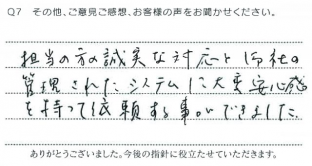 Q7 その他、ご意見ご感想、お客様の声をお聞かせください。
担当の方の誠実な対応と御社の
管理されたシステムに大変安心感
を持って依頼する事ができました。
ありがとうございました。今後の指針に役立たせていただきます。